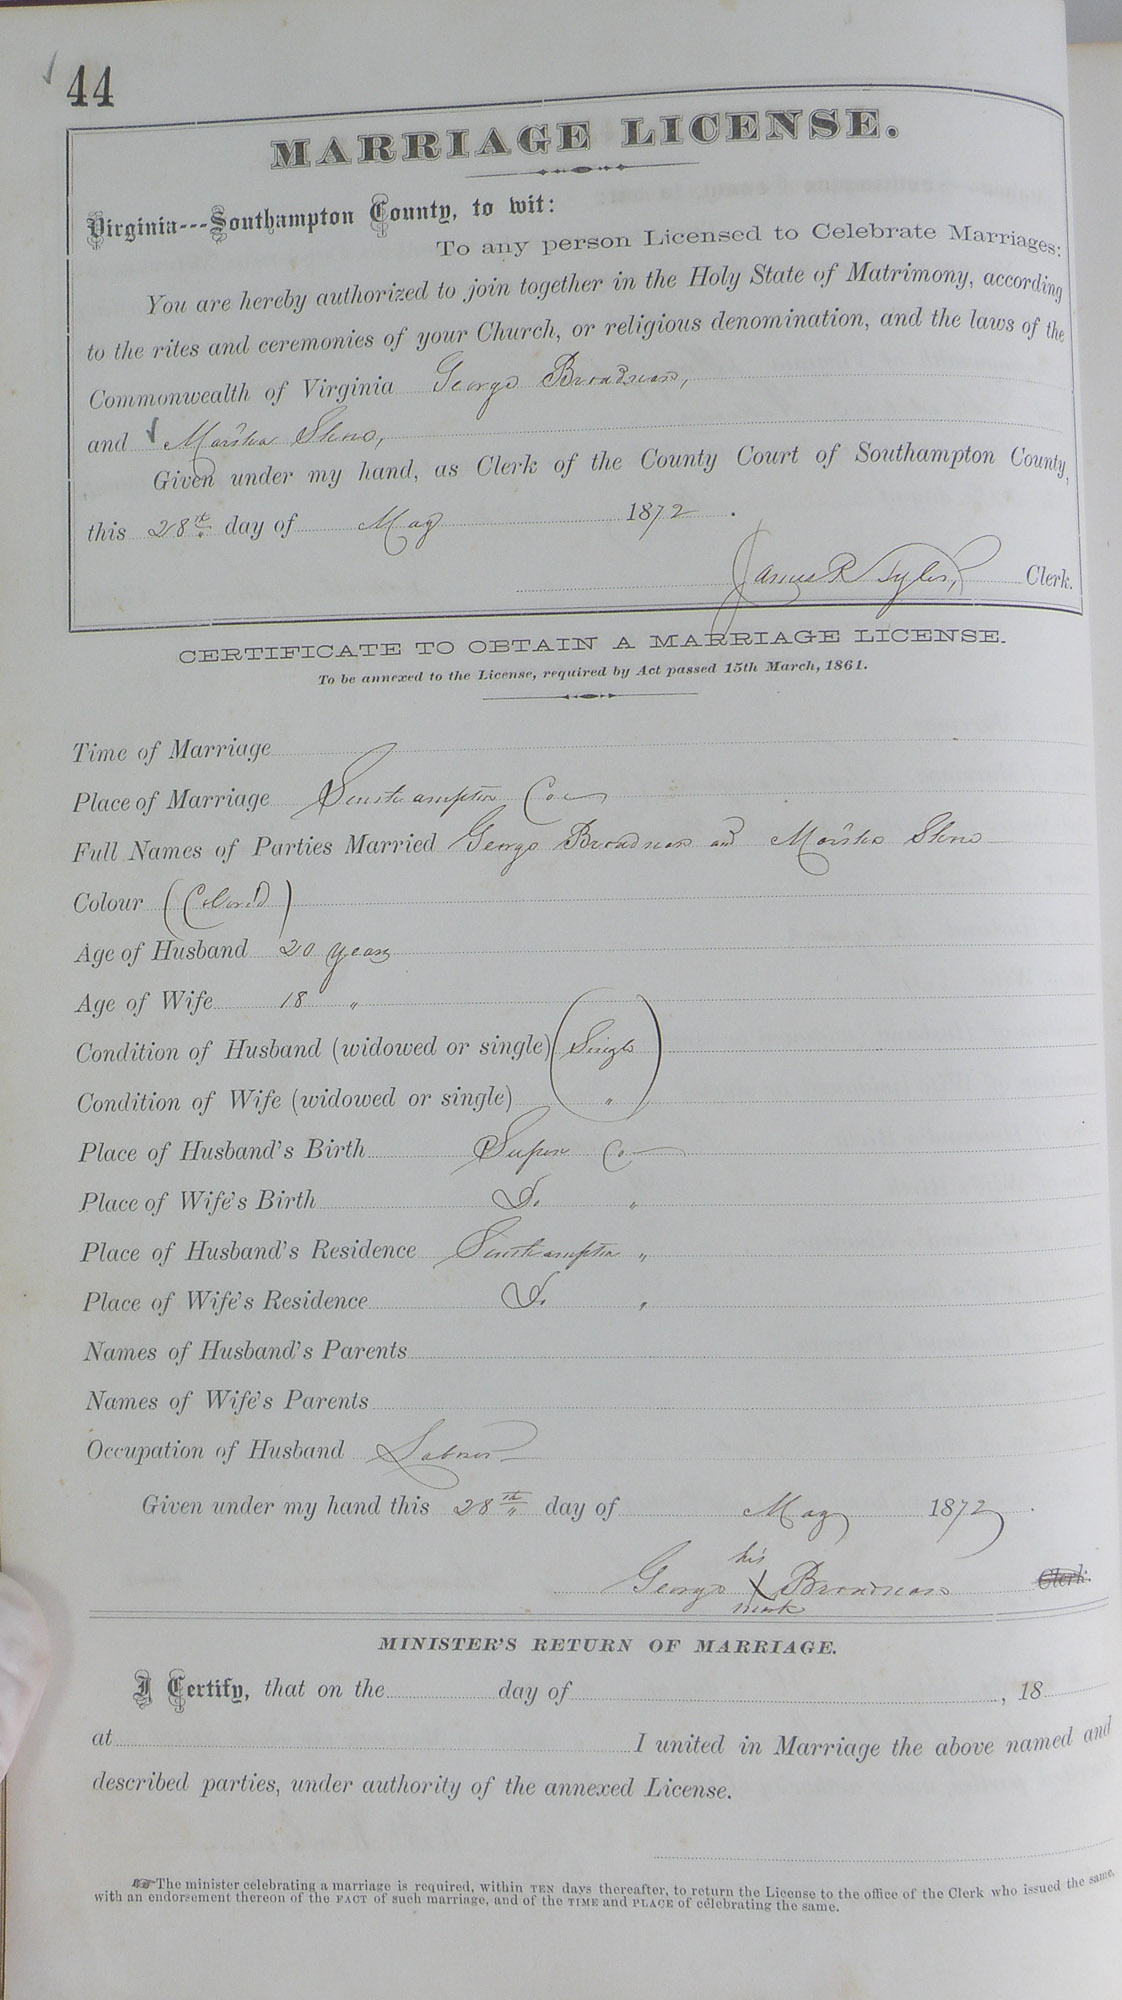 44
MARRIAGE LICENSE.
Virginia---Southampton County, to wit:
To any person Licensed to Celebrate Marriages:
You are hereby authorized to join together in the Holy State of Matrimony, according
to the rites and ceremonies of your Church, or religious denomination, and the laws of the
Commonwealth of Virginia George Broadnax,
and Martha
Given under my hand, as Clerk of the County Court of Southampton County,
this 28th day of May 1872.
James R Tyler, Clerk.
CERTIFICATE TO OBTAIN A MARRIAGE LICENSE.
To be annexed to the License, required by Act passed 15th March, 1861.
Time of Marriage
Place of Marriage Southampton Co
Full Names of Parties Married George Broadnax and Martha
Colour (Colored)
Age of Husband 20 years
Age of Wife 18 "
Condition of Husband (widowed or single) (Single
Condition of Wife (widowed or single) " )
Place of Husband's Birth Co
Place of Wife's Birth Do "
Place of Husband's Residence Southampton "
Place of Wife's Residence Do "
Names of Husband's Parents
Names of Wife's Parents
Occupation of Husband Laborer
Given under my hand this 28th day of May 1872
his
George X Broadnax Clerk.
mark
MINISTER'S RETURN OF MARRIAGE.
I Certify, that on the day of , 18
at I united in Marriage the above named and
described parties, under authority of the annexed License.
☞The minister celebrating a marriage is required, within TEN days thereafter, to return the License to the office of the Clerk who issued the same,
with an endorsement thereon of the FACT of such marriage, and of the TIME and PLACE of celebrating the same.